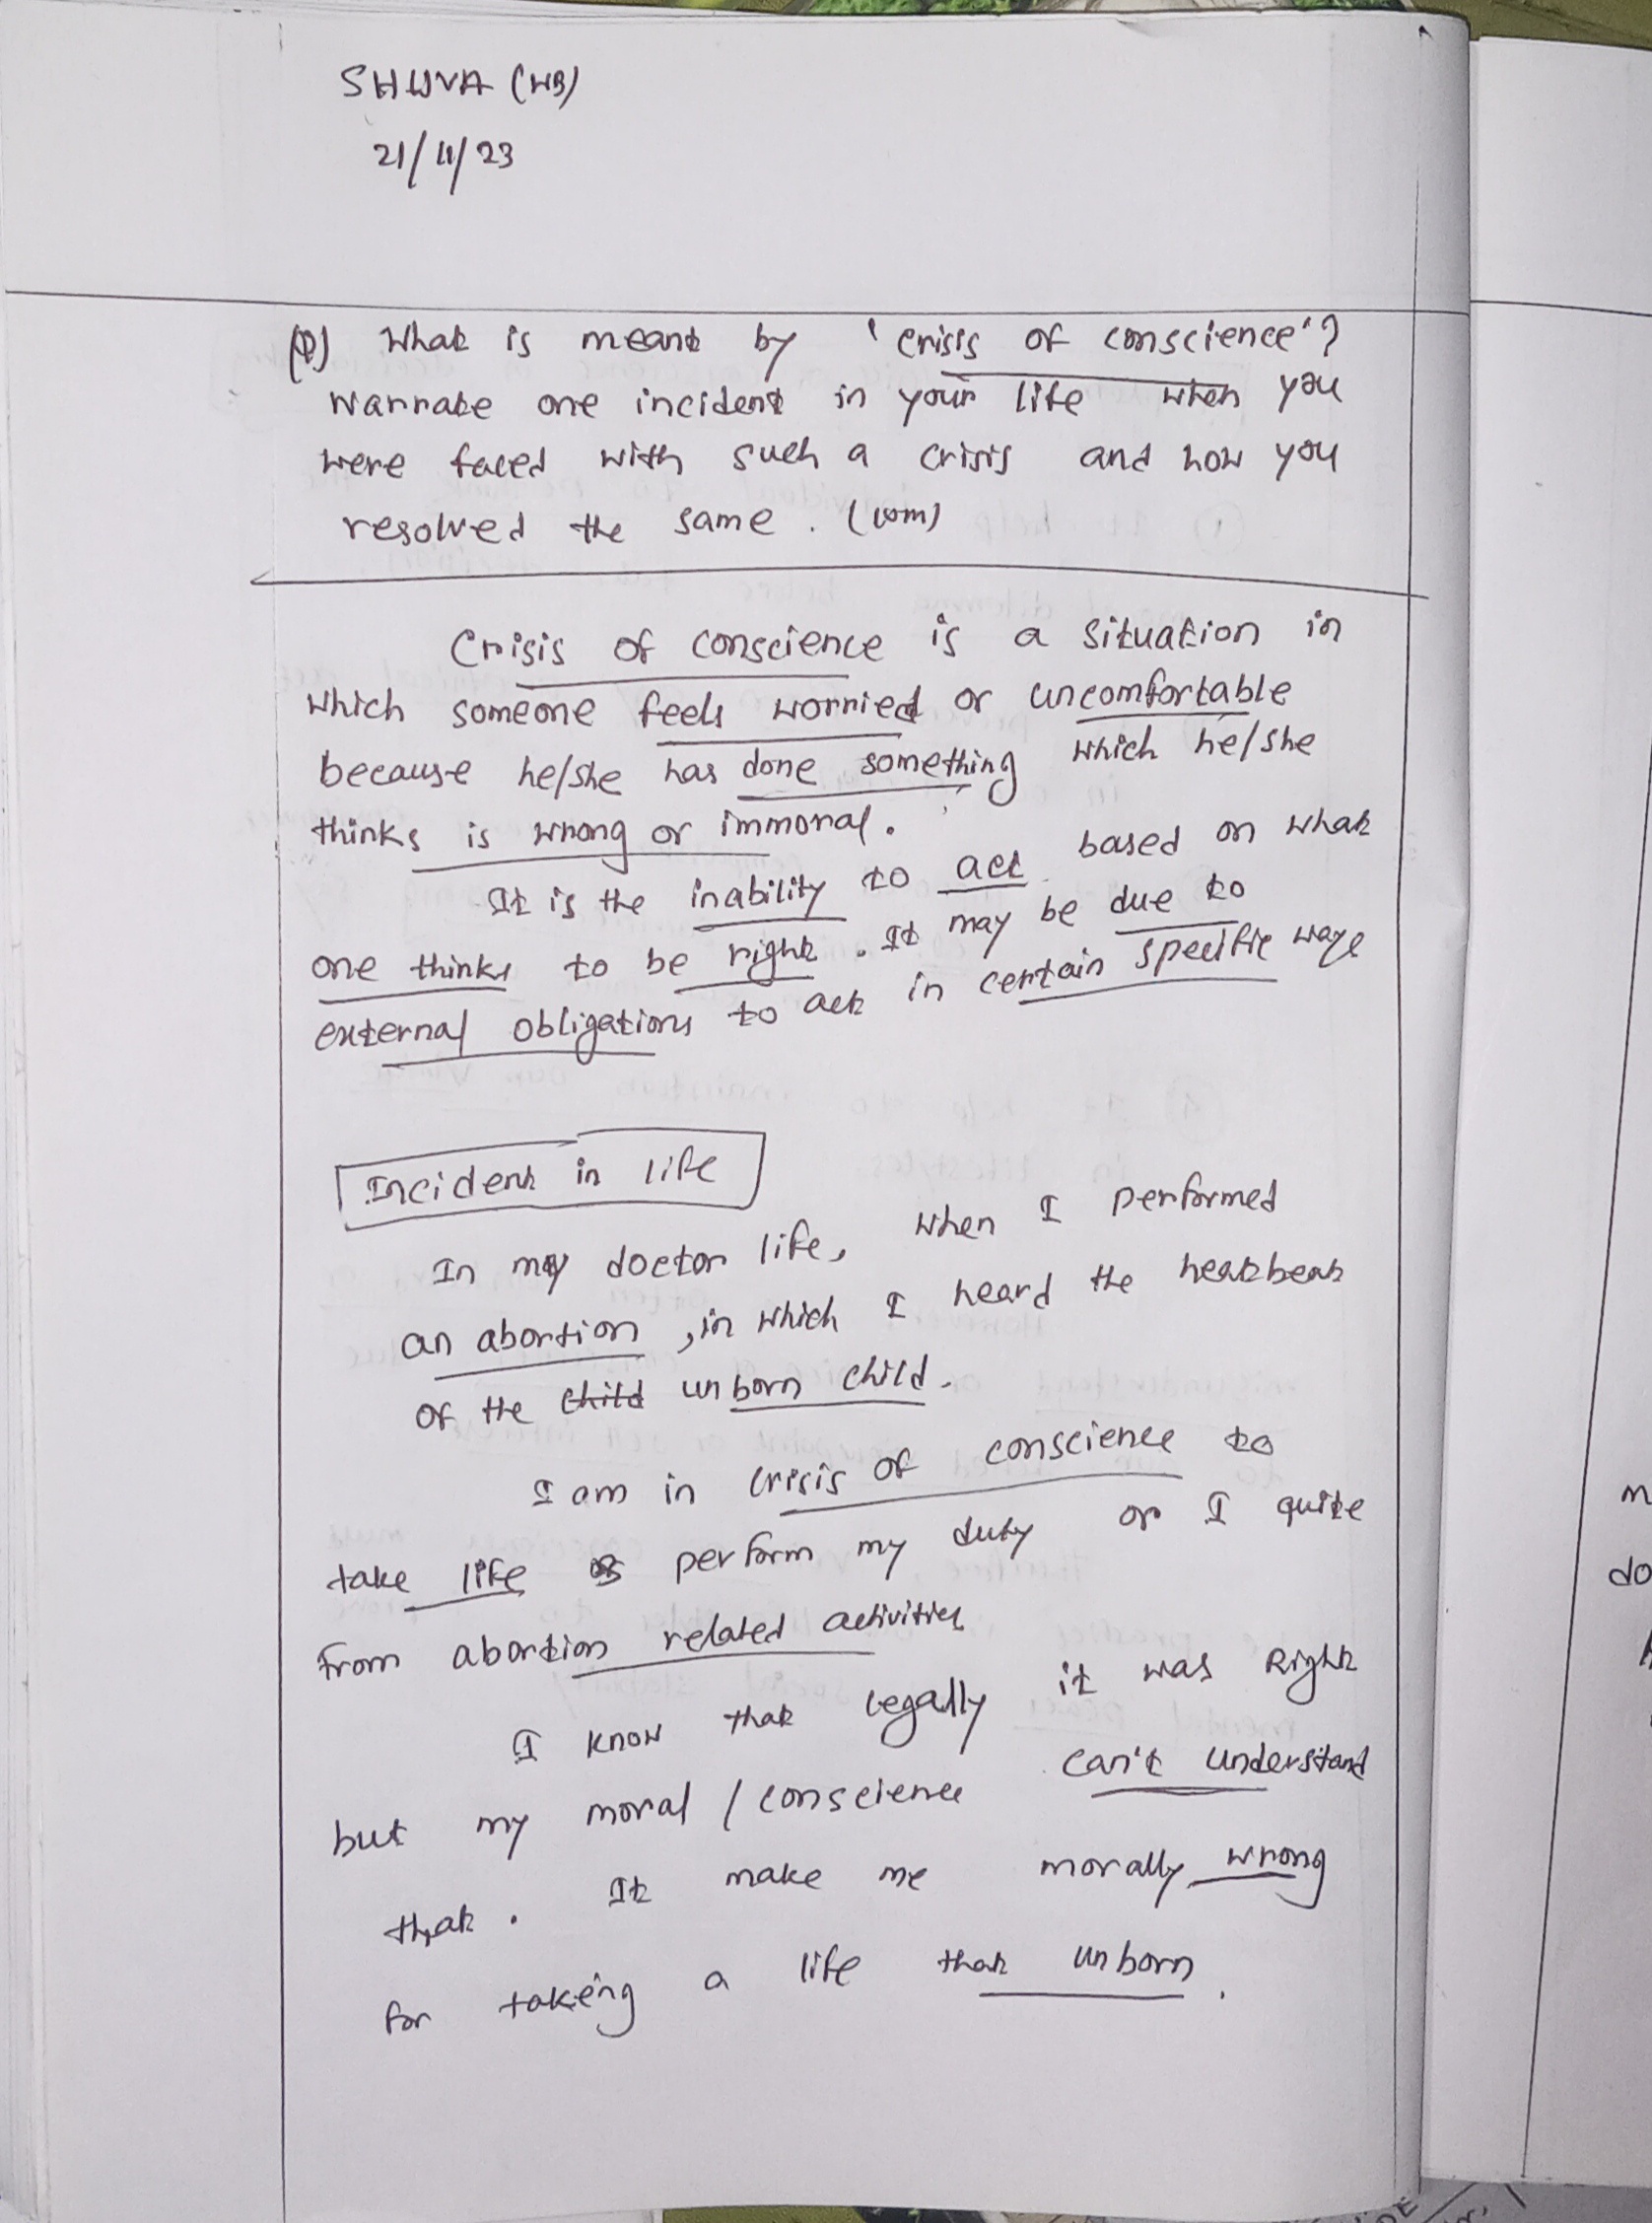 SHUVA (WB)
21/11/23
(Q) What is meant by 'crisis of conscience'?
Warrate one incident in your life when you
were faced with such a crisis and how you
resolved the same. (10m)
Crisis of conscience is a situation in
which someone feels worried or uncomfortable
because he/she has done something which he/she
thinks is wrong or immoral.
It is the inability to act based on what
one thinks to be right. It may be due to
external obligations to act in certain specific ways
Incident in life
In my doctor life, when I performed
an abortion, in which I heard the heartbeat
of the child unborn child.
I am in crisis of conscience to
take life or perform my duty or I quite
from abortion related activities
I know that legally it was Right
but my moral / conscience can't understand
that. It make me morally wrong
for taking a life that unborn.
m
do